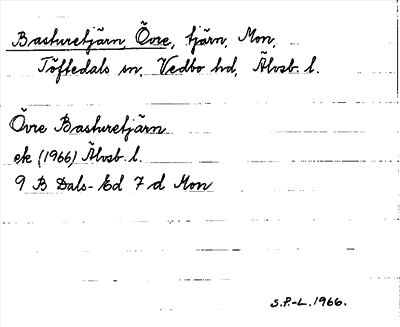 Basturetjärn, Övre, tjärn, Mon,
Töftedals sn, Vedbo hd, Älvsb. l.
Övre Basturetjärn
ek (1966) Älvsb. l.
9 B Dals-Ed 7 d Mon
S.P.-L. 1966.